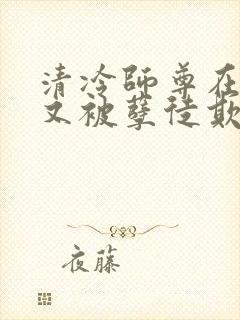 清冷师尊在
又被孽徒欺
夜藤